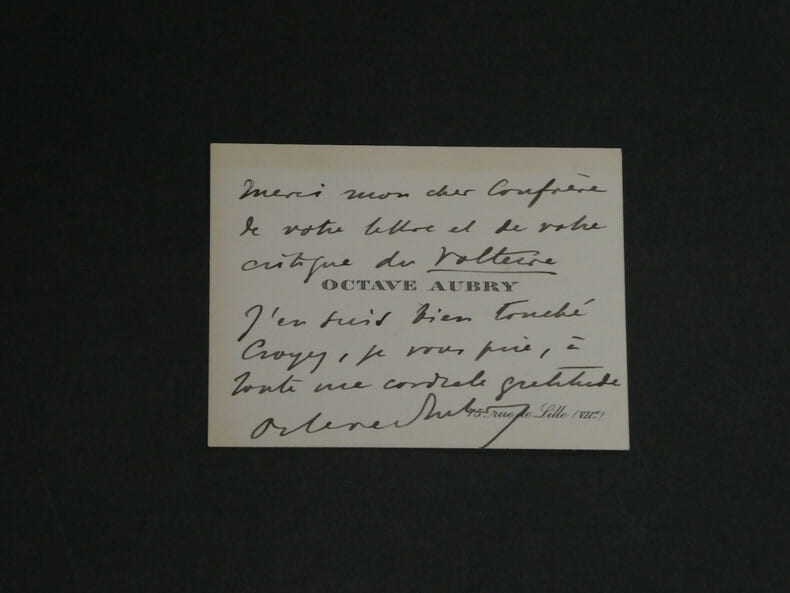 Merci mon cher Confrère
de votre lettre et de votre
critique du Voltaire
OCTAVE AUBRY
J'en suis bien touché
Croyez, je vous prie, à
toute ma cordiale gratitude
Octave Aubry
75, rue de Lille (VIIe)